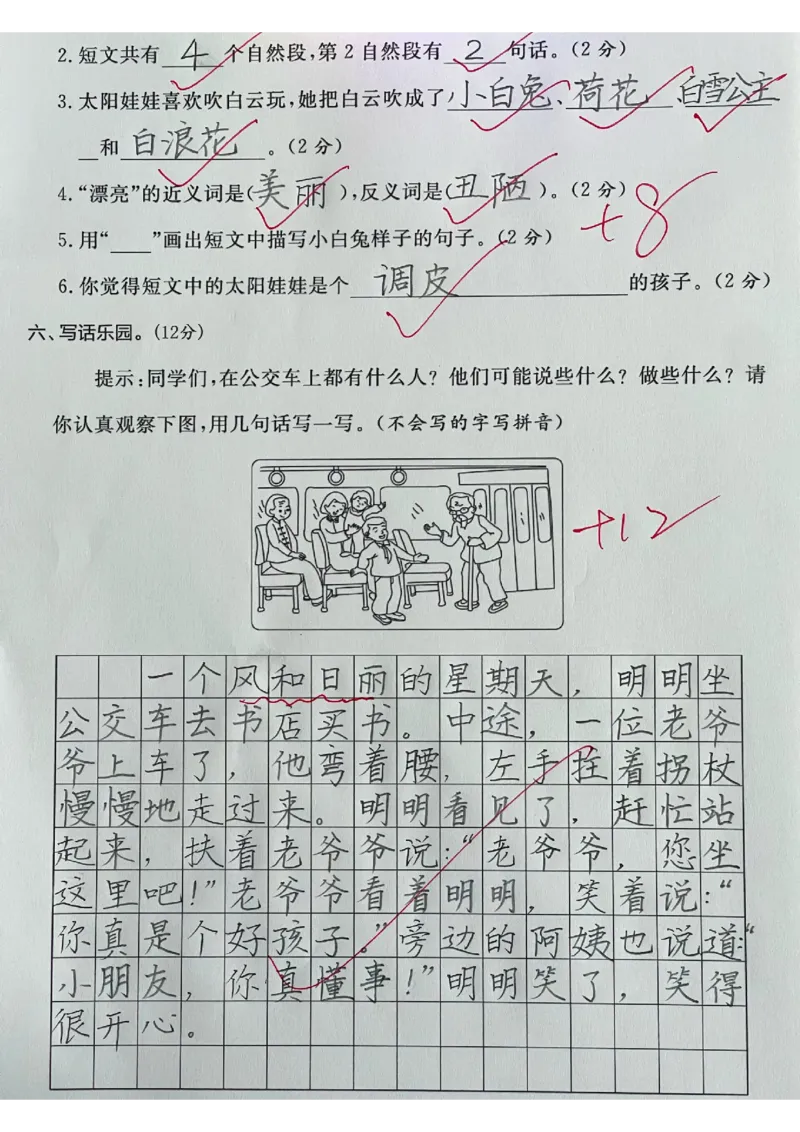 2. 短文共有 4 个自然段,第 2 自然段有 2 句话。(2 分)
3. 太阳娃娃喜欢吹白云玩,她把白云吹成了小白兔、荷花、白雪公主
和白浪花。(2 分)
4. “漂亮”的近义词是(美丽),反义词是(丑陋)。(2 分)
+8
5. 用“____”画出短文中描写小白兔样子的句子。(2 分)
6. 你觉得短文中的太阳娃娃是个 调皮 的孩子。(2 分)
六、写话乐园。(12分)
提示:同学们,在公交车上都有什么人?他们可能说些什么?做些什么?请
你认真观察下图,用几句话写一写。(不会写的字写拼音)
+12
一个风和日丽的星期天,明明坐
公交车去书店买书。中途,一位老爷
爷上车了,他弯着腰,左手拄着拐杖
慢慢地走过来。明明看见了,赶忙站
起来,扶着老爷爷说:“老爷爷,您坐
这里吧!”老爷爷看着明明,笑着说:“
你真是个好孩子。”旁边的阿姨也说道:“
小朋友,你真懂事!”明明笑了,笑得
很开心。